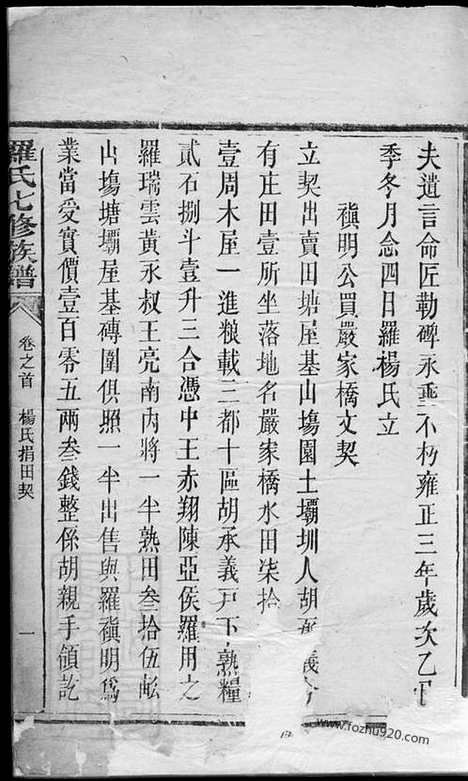 夫遺言命匠勒碑永垂不朽雍正三年歲次乙巳
季冬月念四日羅楊氏立
禛明公買嚴家橋文契
立契出賣田塘屋基山塲園土壩圳人胡承義今
有庄田壹所坐落地名嚴家橋水田柒拾
壹周木屋一進粮載三都十區胡承義戸下熟糧
貳石捌斗壹升三合憑中王赤翔陳亞侯羅用之
羅瑞雲黃永叔王亮南內將一半熟田叁拾伍畝
山塲塘壩屋基磚圍俱照一半出售與羅禛明爲
業當受實價壹百零五兩叁錢整係胡親手領訖
羅氏七修族譜
卷之首 楊氏捐田契 一
www.fozhu920.com